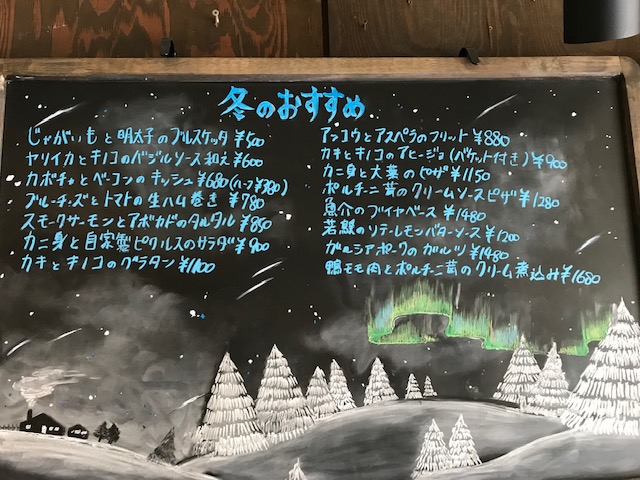 冬のおすすめ
じゃがいもと明太子のブルスケッタ ¥500
ヤリイカとキノコのバジルソース和え ¥600
カボチャとベーコンのキッシュ ¥680(ハーフ¥380)
ブルーチーズとトマトの生ハム巻き ¥780
スモークサーモンとアボカドのタルタル ¥850
カニ身と自家製ピクルスのサラダ ¥900
カキとキノコのグラタン ¥1100
アンコウとアスペラのフリット ¥880
カキとキノコのアヒージョ(バケット付き) ¥900
カニ身と大葉のピザ ¥1150
ポルチーニ茸のクリームソースピザ ¥1280
魚介のブイヤベース ¥1480
若鶏のソテーレモンバターソース ¥1200
ガルシアポークのガルツ ¥1480
鴨モモ肉とポルチーニ茸のクリーム煮込み ¥1680